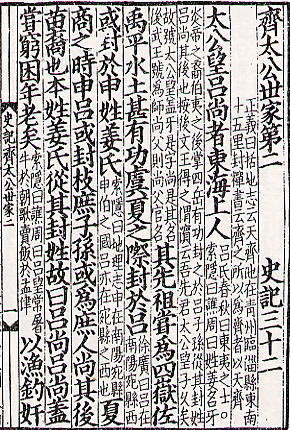 齊太公世家第二　史記三十二
正義曰括地志云天齊池在青州臨淄縣東南
十五里封禪書云齊之所以為齊者以天齊
太公望呂尚者東海上人
呂氏春秋曰東夷之士○
索隱曰譙周曰姓姜名牙
炎帝之裔伯夷之後掌四岳有功封之於呂子孫從其封姓
呂尚其後也按後文王得之渭濱云吾先君太公望子久矣
故號太公望蓋牙是字尚是其名
後武王號為師尚父則尚父官名
其先祖嘗為四嶽佐
禹平水土甚有功虞夏之際封於呂
徐廣曰呂在
南陽宛縣西
或封於申姓姜氏
索隱曰地理志申在南陽宛縣
申伯之國呂亦在宛縣之西也
夏
商之時申呂或封枝庶子孫或為庶人尚其後
苗裔也本姓姜氏從其封姓故曰呂尚呂尚蓋
嘗窮困年老矣
索隱曰譙周曰呂望常屠
牛於朝歌賣飯於孟津
以漁釣奸
史記齊太公世家二
一